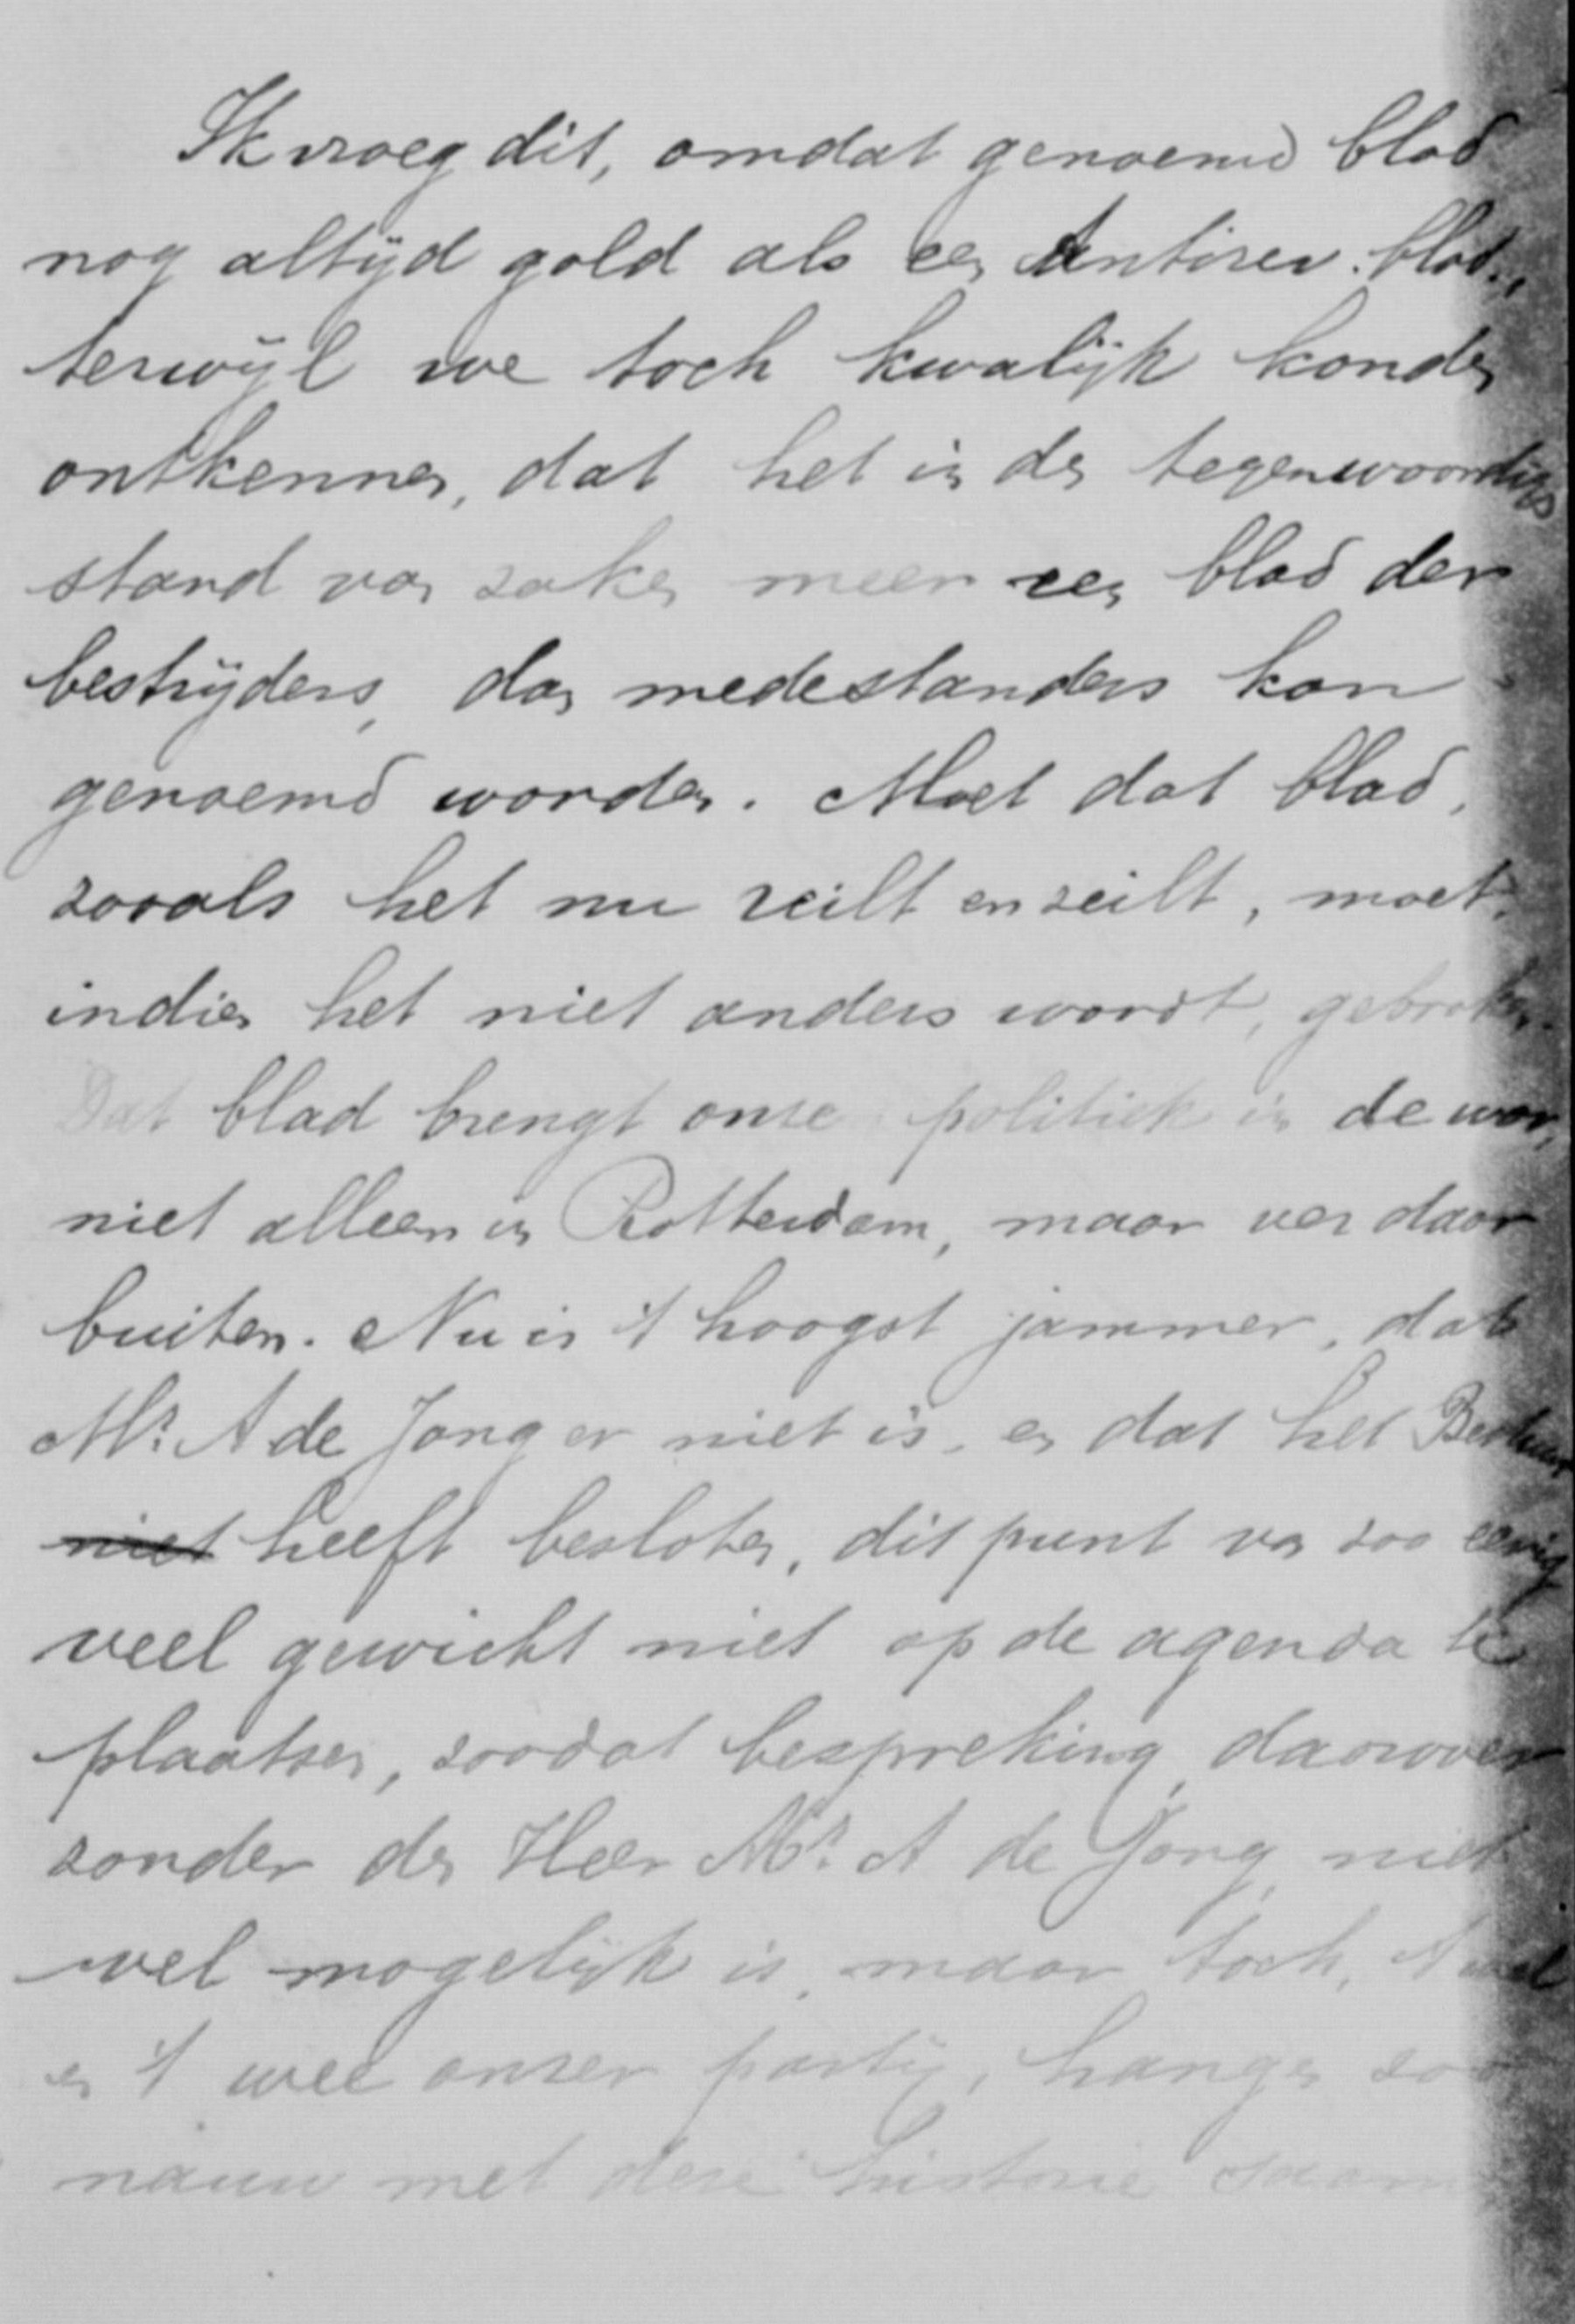 Ik vroeg dit, omdat genoemd blad
nog altijd gold als een Antirev. blad,
terwijl we toch kwalijk konden
ontkennen, dat het in den tegenwoordigen
stand van zaken meer een blad der
bestrijders, dan medestanders kan
genoemd worden. Moet dat blad,
zooals het nu reilt en zeilt, moet,
indien het niet anders wordt, gebroken.
Dat blad brengt onze politiek in de war,
niet alleen in Rotterdam, maar ver daar
buiten. Nu is 't hoogst jammer, dat
Mr. A de Jong er niet is, en dat het Bestuur
niet heeft besloten, dit punt van zoo eenig
veel gewicht niet op de agenda te
plaatsen, zoodat bespreking daarover
zonder den Heer Mr. A de Jong, niet
wel mogelijk is, maar toch, 't wel
en 't wee onzer partij, hangen zoo
nauw met deze historie saam